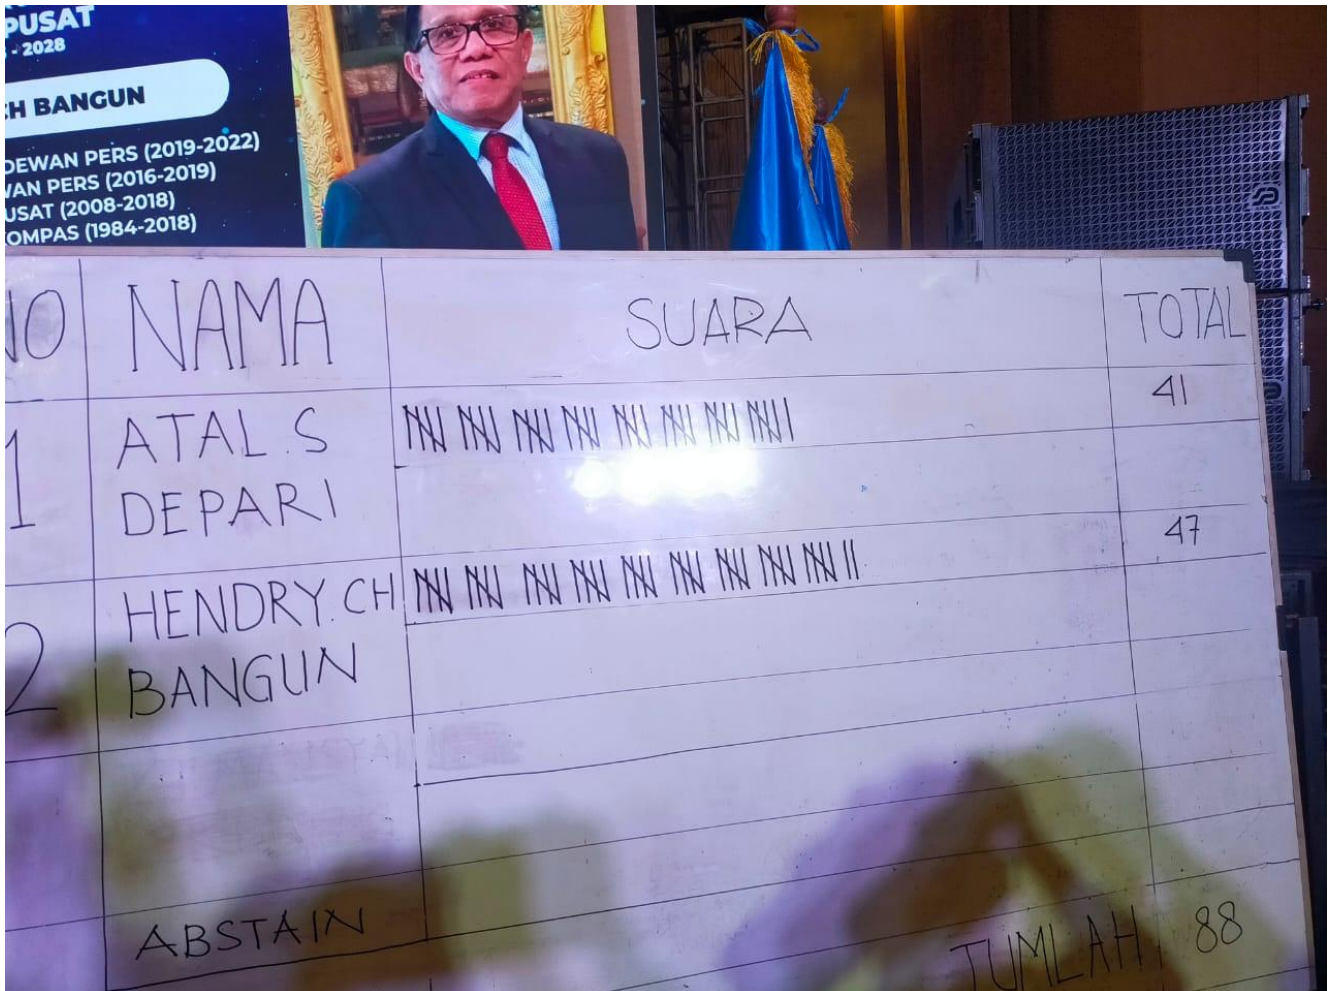 PUSAT
- 2028
CH BANGUN
DEWAN PERS (2019-2022)
PERS (2016-2019)
(2008-2018)
(1984-2018)
NO NAMA SUARA TOTAL
1 ATAL.S 41
DEPARI
2 HENDRY.CH 47
BANGUN
ABSTAIN
JUMLAH 88